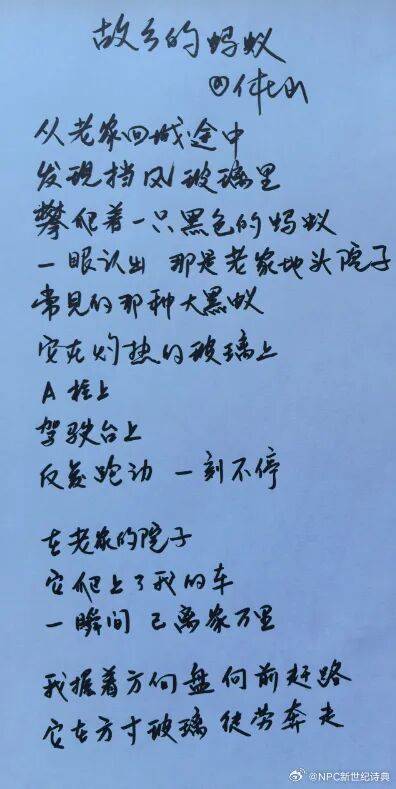 故乡的蚂蚁
从老家回城途中
发现挡风玻璃里
攀爬着一只黑色的蚂蚁
一眼认出 那是老家地头院子
常见的那种大黑蚁
它在灼热的玻璃上
A柱上
驾驶台上
反复跑动 一刻不停
在老家的院子
它爬上了我的车
一瞬间 已离家万里
我握着方向盘向前赶路
它在方寸玻璃 徒劳奔走
@NPC新世纪诗典